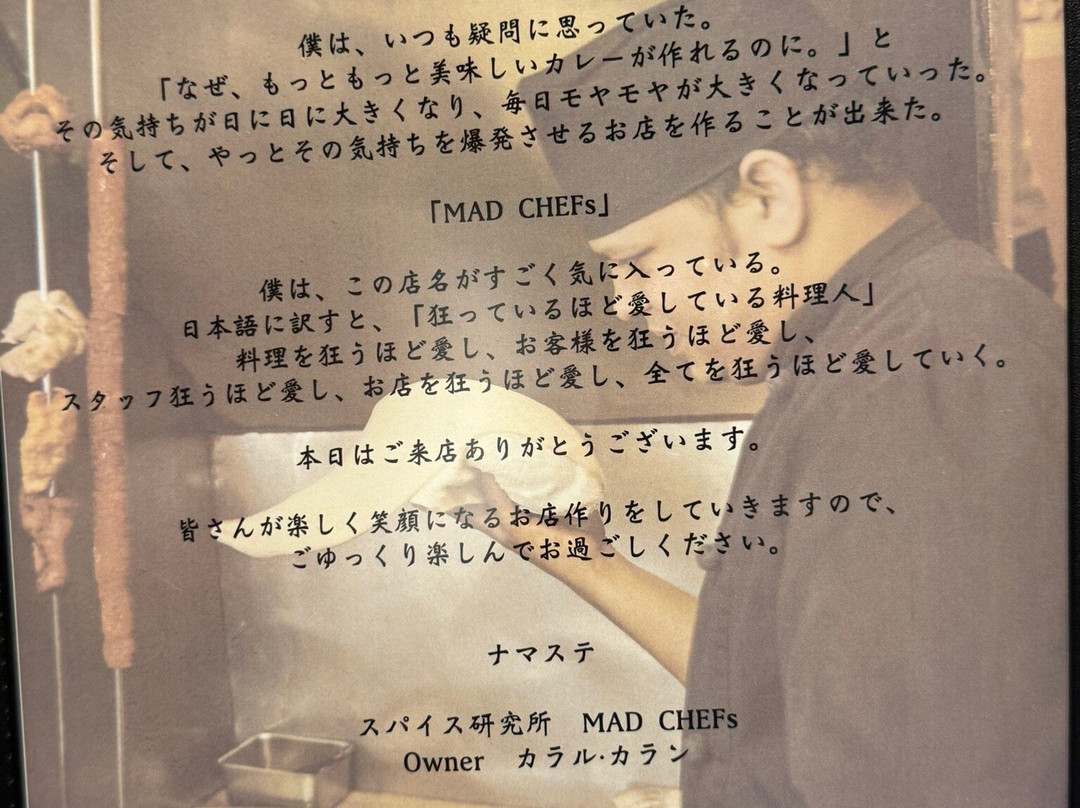 僕は、いつも疑問に思っていた。
「なぜ、もっともっと美味しいカレーが作れるのに。」と
その気持ちが日に日に大きくなり、毎日モヤモヤが大きくなっていった。
そして、やっとその気持ちを爆発させるお店を作ることが出来た。
「MAD CHEFs」
僕は、この店名がすごく気に入っている。
日本語に訳すと、「狂っているほど愛している料理人」
料理を狂うほど愛し、お客様を狂うほど愛し、
スタッフ狂うほど愛し、お店を狂うほど愛し、全てを狂うほど愛していく。
本日はご来店ありがとうございます。
皆さんが楽しく笑顔になるお店作りをしていきますので、
ごゆっくり楽しんでお過ごしください。
ナマステ
スパイス研究所 MAD CHEFs
Owner カラル·カラン